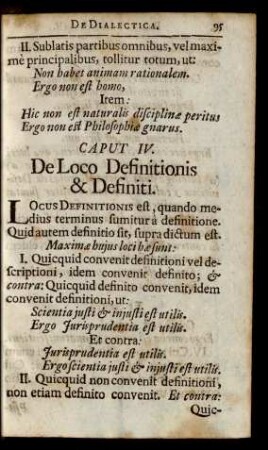 DE DIALECTICA. 95
II. Sublatis partibus omnibus, vel maxi-
mè principalibus, tollitur totum, ut:
Non habet animam rationalem.
Ergo non est homo,
Item:
Hic non est naturalis disciplinæ peritus
Ergo non est Philosophiæ gnarus.
CAPUT IV.
De Loco Definitionis
& Definiti.
LOCUS DEFINITIONIS est, quando me-
dius terminus sumitur à definitione.
Quid autem definitio sit, supra dictum est.
Maximæ hujus loci hæ sunt:
I. Quicquid convenit definitioni vel de-
scriptioni, idem convenit definito; &
contra: Quicquid definito convenit, idem
convenit definitioni, ut:
Scientia justi & injusti est utilis.
Ergo Jurisprudentia est utilis.
Et contra:
Jurisprudentia est utilis.
Ergo scientia justi & injusti est utilis.
II. Quicquid non convenit definitioni,
non etiam definito convenit. Et contra:
Quic-